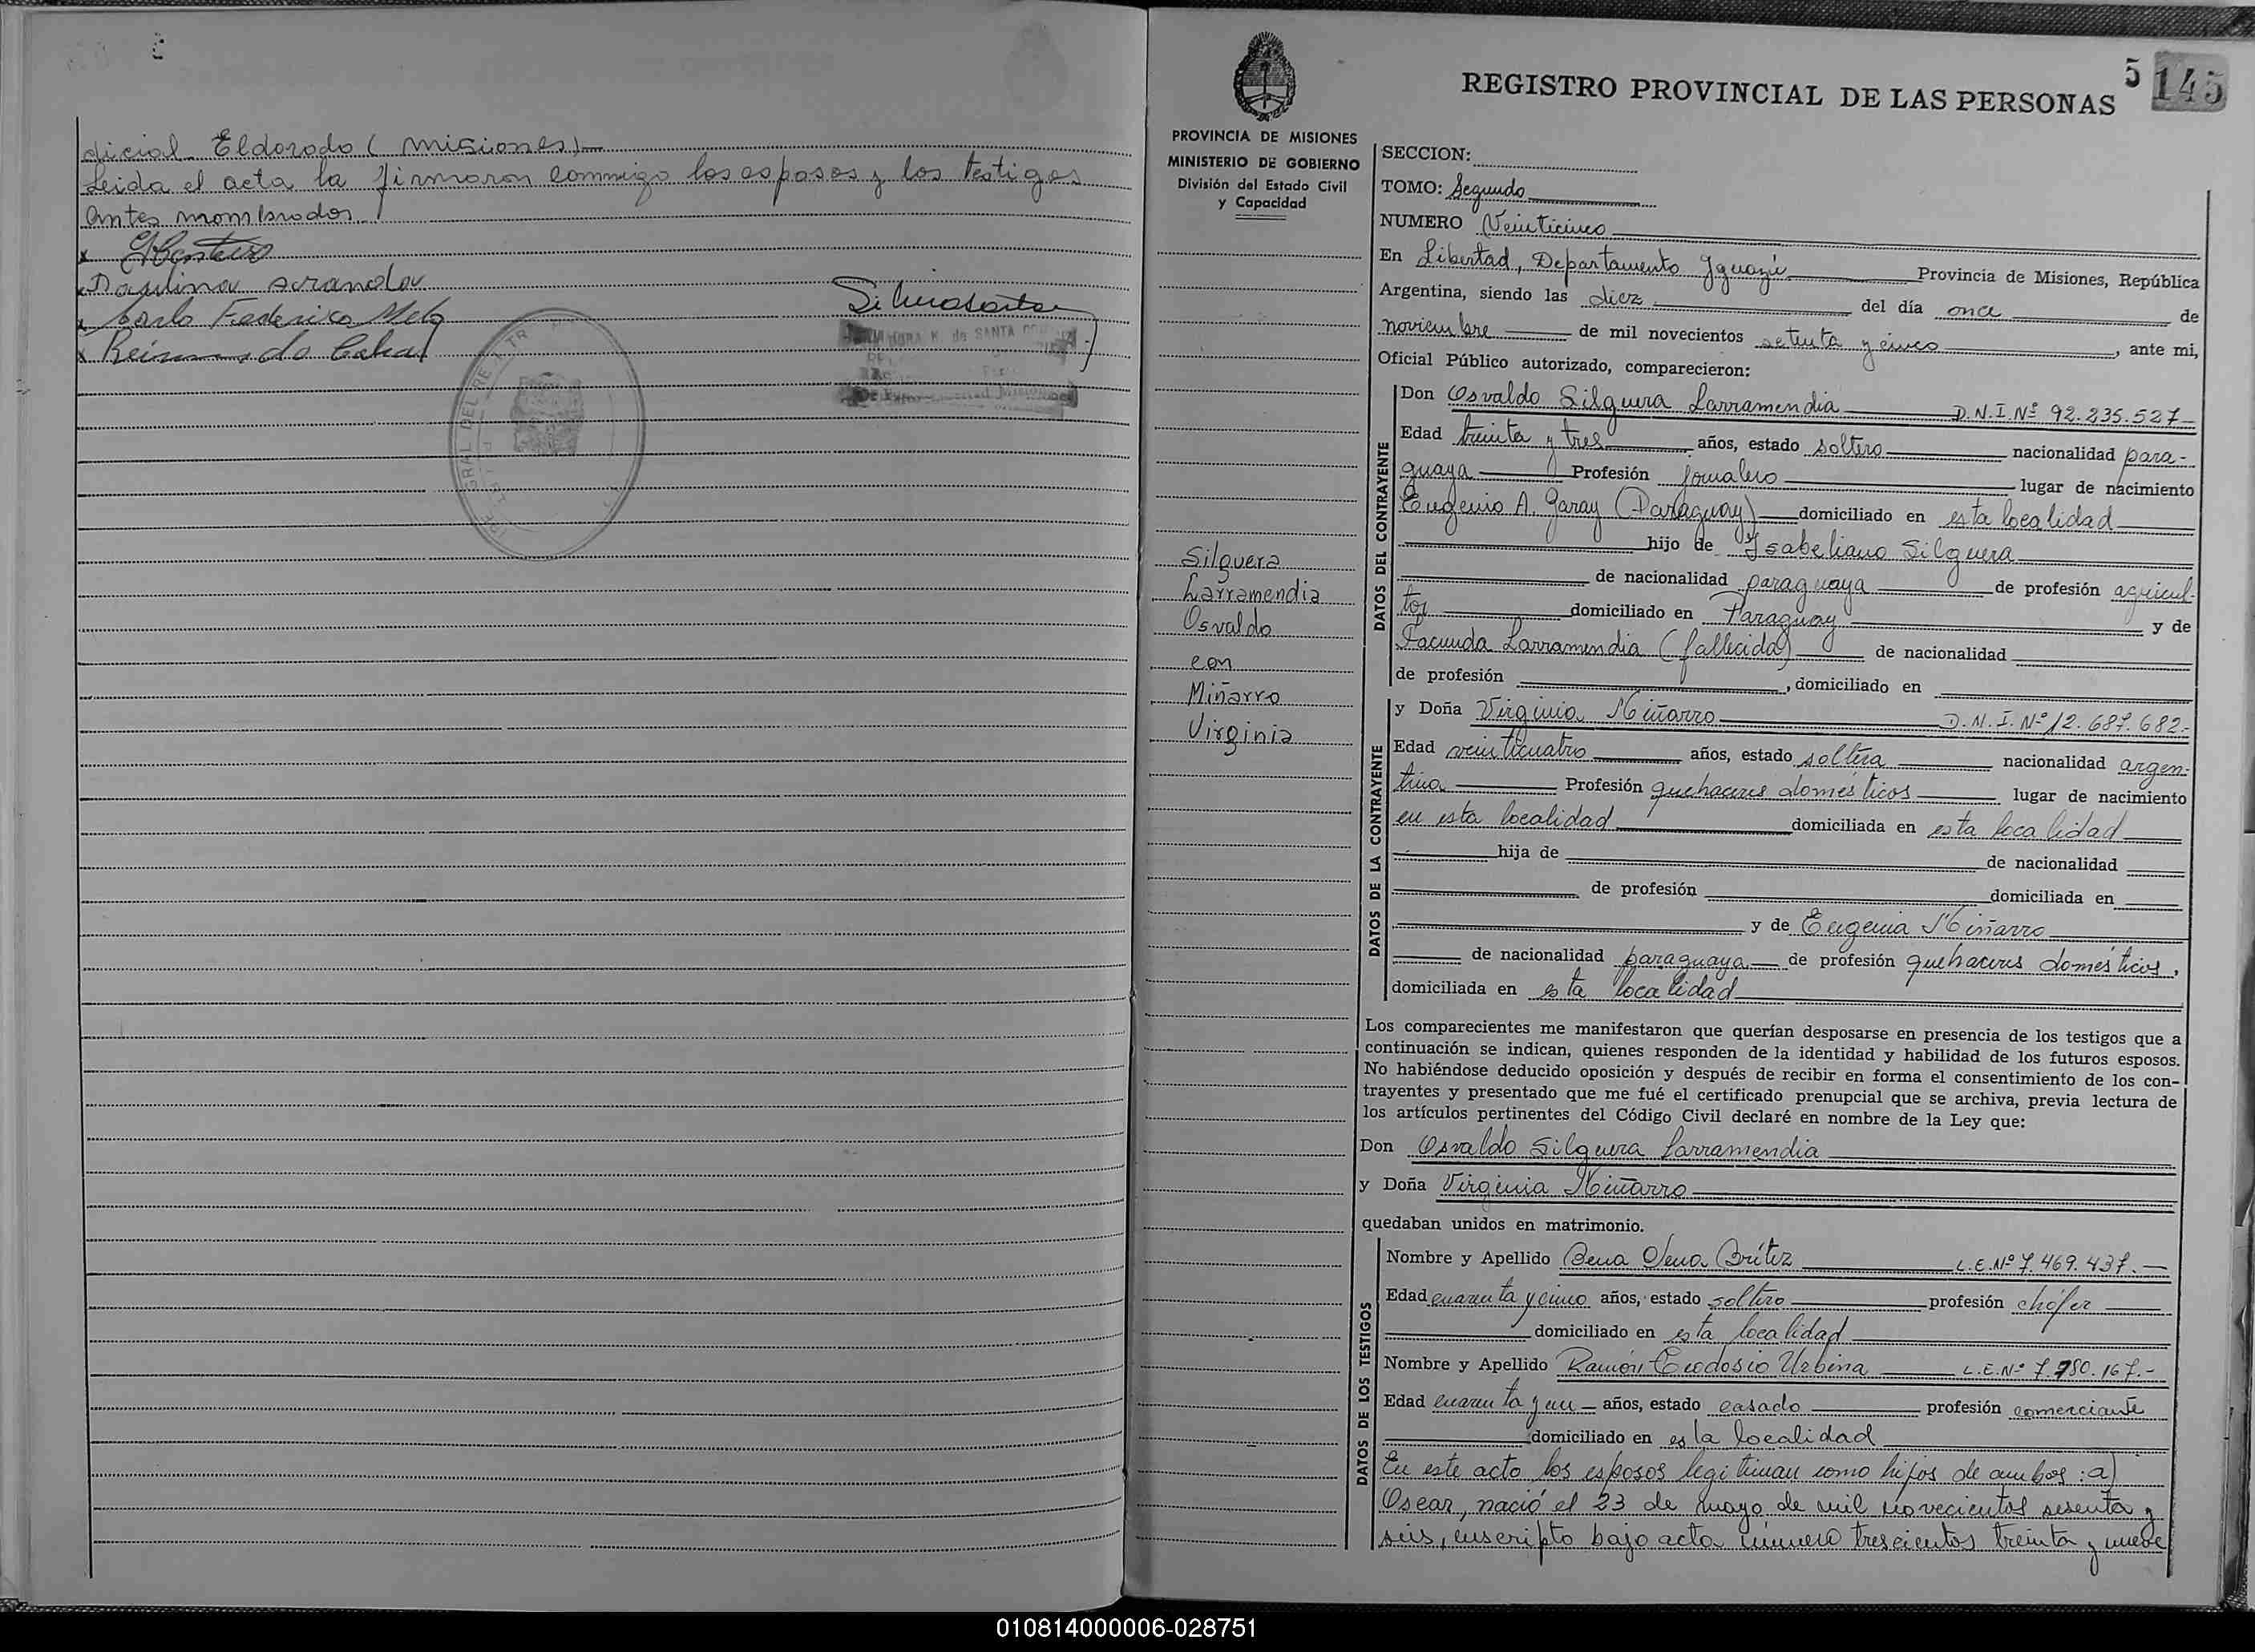 dicial Eldorado (Misiones)
Leida el acta la firmaron conmigo los esposos y los testigos
antes nombrados
Paulina Aranda
Carlo Federico Melo
Reinando Cabral
145
5
REGISTRO PROVINCIAL DE LAS PERSONAS
PROVINCIA DE MISIONES
MINISTERIO DE GOBIERNO
División del Estado Civil
y Capacidad
Silguera
Larramendia
Osvaldo
con
Miñarro
Virginia
SECCION:
TOMO: Segundo
NUMERO Veinticinco
En Libertad, Departamento Iguazú Provincia de Misiones, República
Argentina, siendo las diez del día once de
noviembre de mil novecientos setenta y cinco, ante mi,
Oficial Público autorizado, comparecieron:
DATOS DEL CONTRAYENTE
Don Osvaldo Silguera Larramendia D.N.I. Nº 92.235.527-
Edad treinta y tres años, estado soltero nacionalidad para-
guaya Profesión Jornalero lugar de nacimiento
Eugenio A. Garay (Paraguay) domiciliado en esta localidad
hijo de Ysabeliano Silguera
de nacionalidad paraguaya de profesión agricul-
tor domiciliado en Paraguay y de
Facunda Larramendia (fallecida) de nacionalidad
de profesión , domiciliado en
DATOS DE LA CONTRAYENTE
y Doña Virginia Miñarro D.N.I. Nº 12.687.682.-
Edad veinticuatro años, estado soltera nacionalidad argen-
tina Profesión quehaceres domésticos lugar de nacimiento
en esta localidad domiciliada en esta localidad
hija de de nacionalidad
de profesión domiciliada en
y de Eugenia Miñarro
de nacionalidad paraguaya de profesión quehaceres domésticos,
domiciliada en esta localidad
Los comparecientes me manifestaron que querían desposarse en presencia de los testigos que a
continuación se indican, quienes responden de la identidad y habilidad de los futuros esposos.
No habiéndose deducido oposición y después de recibir en forma el consentimiento de los con-
trayentes y presentado que me fué el certificado prenupcial que se archiva, previa lectura de
los artículos pertinentes del Código Civil declaré en nombre de la Ley que:
Don Osvaldo Silguera Larramendia
y Doña Virginia Miñarro
quedaban unidos en matrimonio.
DATOS DE LOS TESTIGOS
Nombre y Apellido Brítez L.E. Nº 7.469.437.-
Edad cuarenta y cinco años, estado soltero profesión chófer
domiciliado en esta localidad
Nombre y Apellido Ramón Teodosio Urbina L.E. Nº 7.780.167.-
Edad cuarenta y un años, estado casado profesión comerciante
domiciliado en esta localidad
En este acto los esposos legitiman como hijos de ambos: a)
Oscar, nació el 23 de mayo de mil novecientos sesenta y
seis, inscripto bajo acta número trescientos treinta y nueve
010814000006-028751